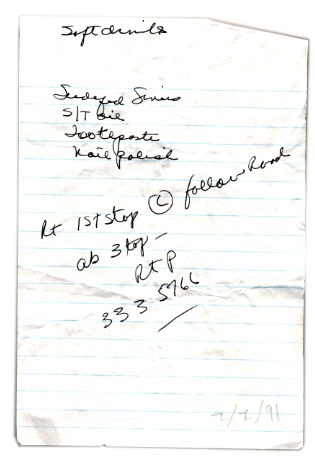 Soft drinks
S/T Oil
Toothpaste
Nail polish
Rt 1st stop Ⓛ follow Road
ab 3 top –
Rt P
333 5766
1/1/91